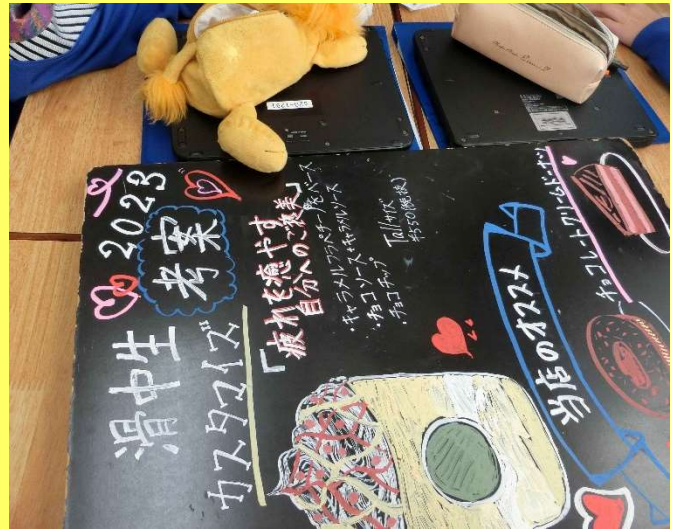 2023
考案
滑中生
カスタマイズ
「疲れを癒やす
自分へのご褒美」
・キャラメルフラペチーノをベース
・チョコソース キャラメルソース
・チョコチップ
Tallサイズ
¥550(税抜)
当店のオススメ
チョコレートクリームドーナツ